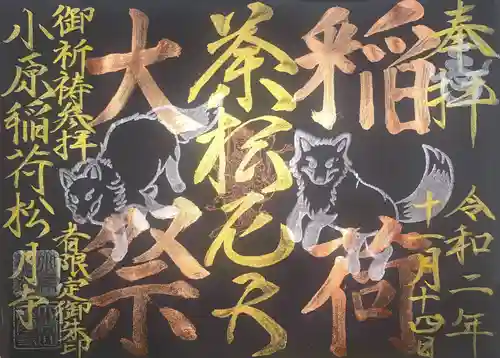 奉拝
令和二年
十一月十四日
稲荷
荼枳尼天
大祭
御祈祷参拝者限定御朱印
小原稲荷松月寺